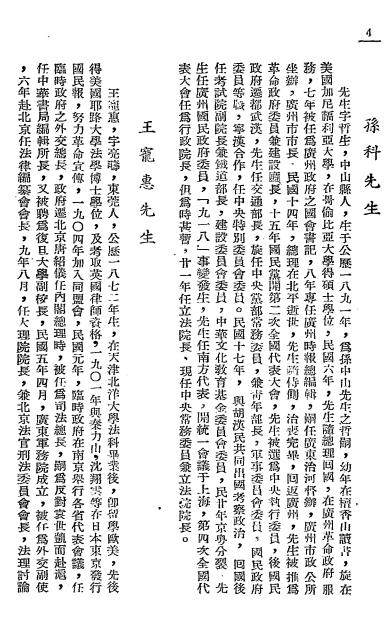 4
孫科先生
先生字哲生，中山縣人，生于公歷一八九一年，爲孫中山先生之哲嗣，幼年在檀香山讀書，旋在
美國加尼福利亞大學，在哥倫比亞大學得碩士學位，民國六年，先生隨總理回國，在廣州革命政府服
務，七年被任爲廣州政府之國會書記，八年專任廣州時報總編輯，嗣任廣東治河督辦，廣州市政公所
坐辦，廣州市市長，民國十四年，總理在北平逝世，先生隨侍側，治喪完畢，回返廣州，先生被推爲
革命政府委員兼建設廳長，十五年國民黨開第二次全國代表大會，先生被選爲中央執行委員，後國民
政府遷都武漢，先生任交通部長，旋任中央黨部常務委員，兼青年部長，軍事委員會委員，國民政府
委員等職，寧漢合作，任中央特別委員會委員。民國十七年，與胡漢民共同出國考察政治，回國後
任考試院副院長兼鐵道部長，建設委員會委員，中華文化敎育基金委員會委員，民廿年京粤分裂，先
生任廣州國民政府委員，「九一八」事變發生，先生任南方代表，開統一會議于上海，第四次全國代
表大會任爲行政院長，但爲時甚暫，廿一年任立法院長、現任中央常務委員兼立法院院長。
王寵惠先生
王寵惠，字亮疇，東莞人，公歷一八七二年生，在天津北洋大學法科畢業後，卽留學歐美，先後
得美國耶路大學法學博士學位，及考取英國律師資格，一九〇一年與秦力山，沈翔雲等在日本東京發行
國民報，努力革命宣傳，一九〇四年加入同盟會，民國元年，臨時政府在南京舉行各省代表會議，任
臨時政府之外交總長，政府遷北京唐紹儀任內閣總理時，被任爲司法總長，嗣爲反對袁世凱而赴滬，
任中華書局編輯所長，又被聘爲復旦大學副校長，民國五年四月，廣東軍務院成立，被任爲外交副使
，六年赴北京任法律編纂會會長，九年八月，任大理院院長，兼北京法官刑法委員會會長，法理討論